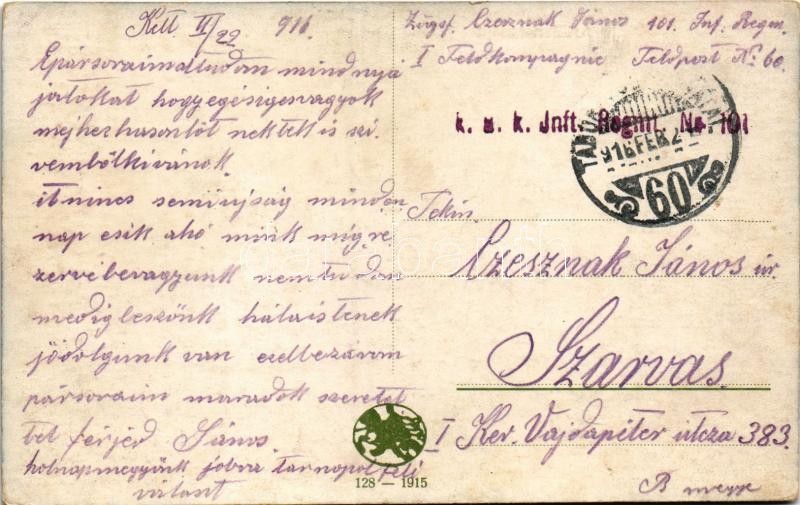 Kelt II/22 916.
Epársoraimaltudom mindnyá
jatokat hogyegésigesvagyok
mejhezhasonlót nektek is szi
vembőlkivánok.
itnincs semiujság minden
nap esik ahó mink mégre
zervébevagyunk nemtudom
medigleszönk hálaistenek
jódolgunk van ezelbezárom
pársoraim maradok szeretet
tel férjed János.
holnapmegyünk jobra tarnopolfelé
Zugsf. Czesznak János 101. Inf. Regm.
I Feldkompagnie Feldpost No. 60.
k. u. k. Inft. Regmt. No. 101
TÁBORI
916 FEB 2
60
Tekin.
Czesznak János úr.
Szarvas.
I Ker. Vajdapéter utcza 383.
B megye
128 — 1915